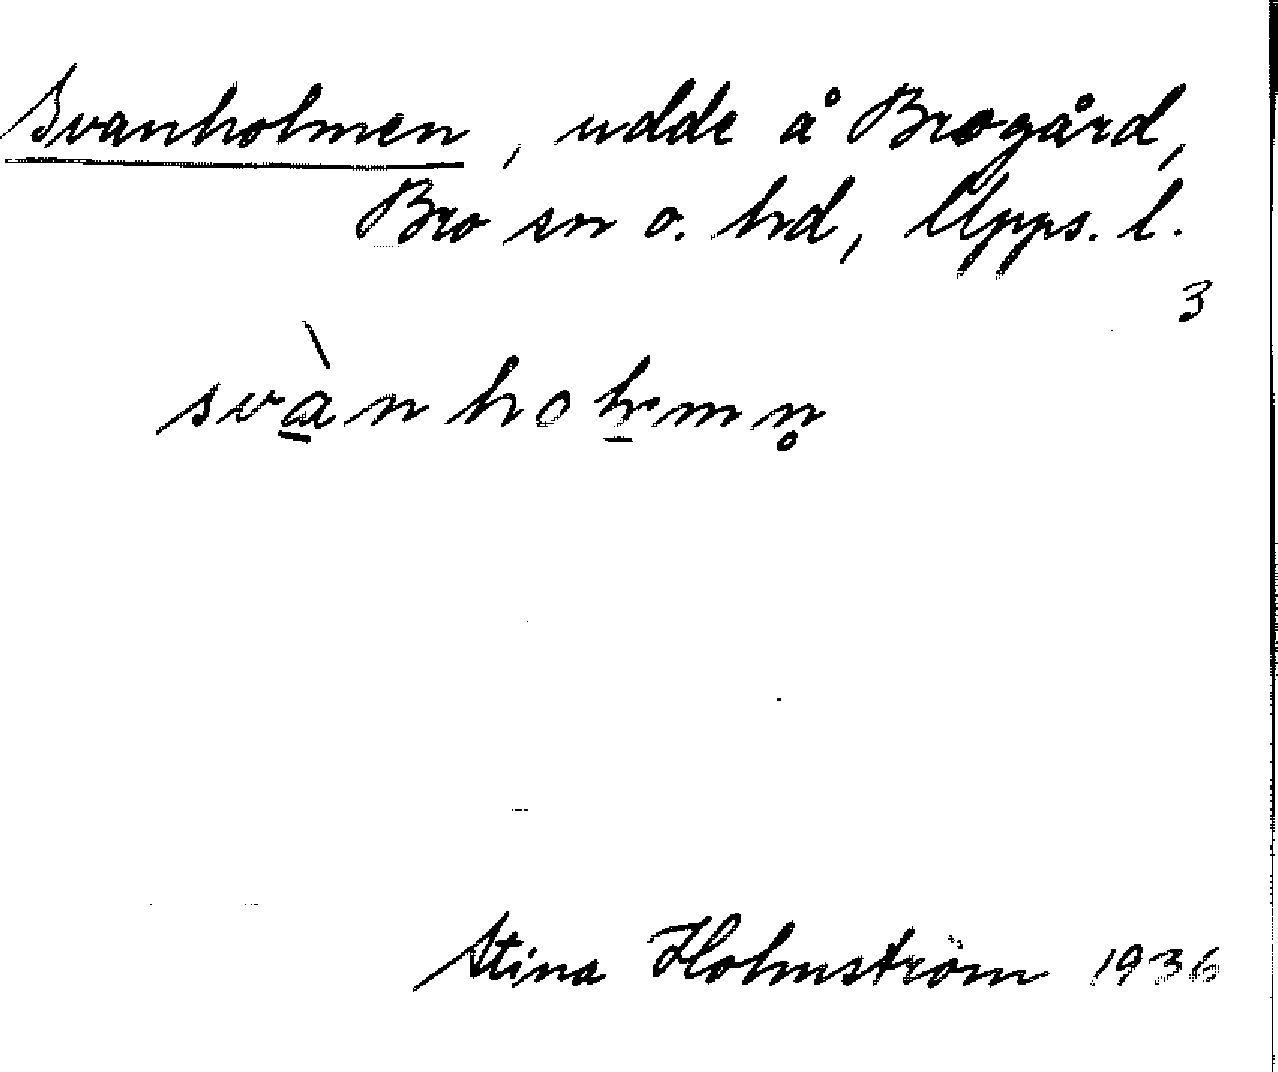 Svanholmen, udde å Brogård,
Bro sn o. hd, Upps. l.
3
Stina Holmström 1936